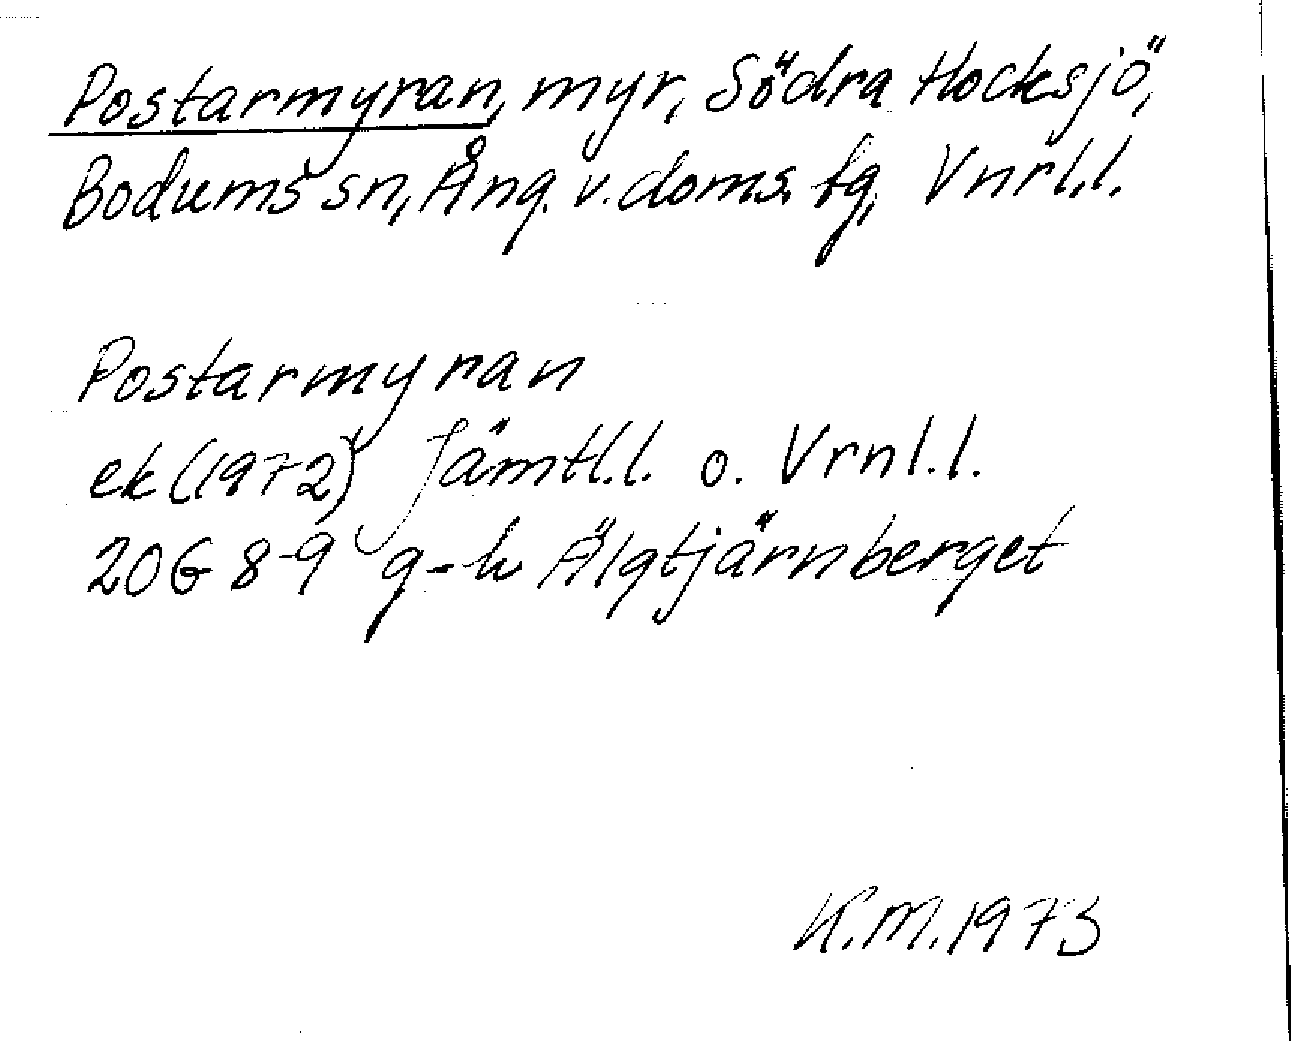 Postarmyran, myr, Södra Hocksjö,
Bodums sn, Ång. v. doms. fg, Vnrl.l.
Postarmyran
ek (1972) Jämtl.l. o. Vrnl.l.
20G 8-9 g-h Älgtjärnberget
K.M. 1973